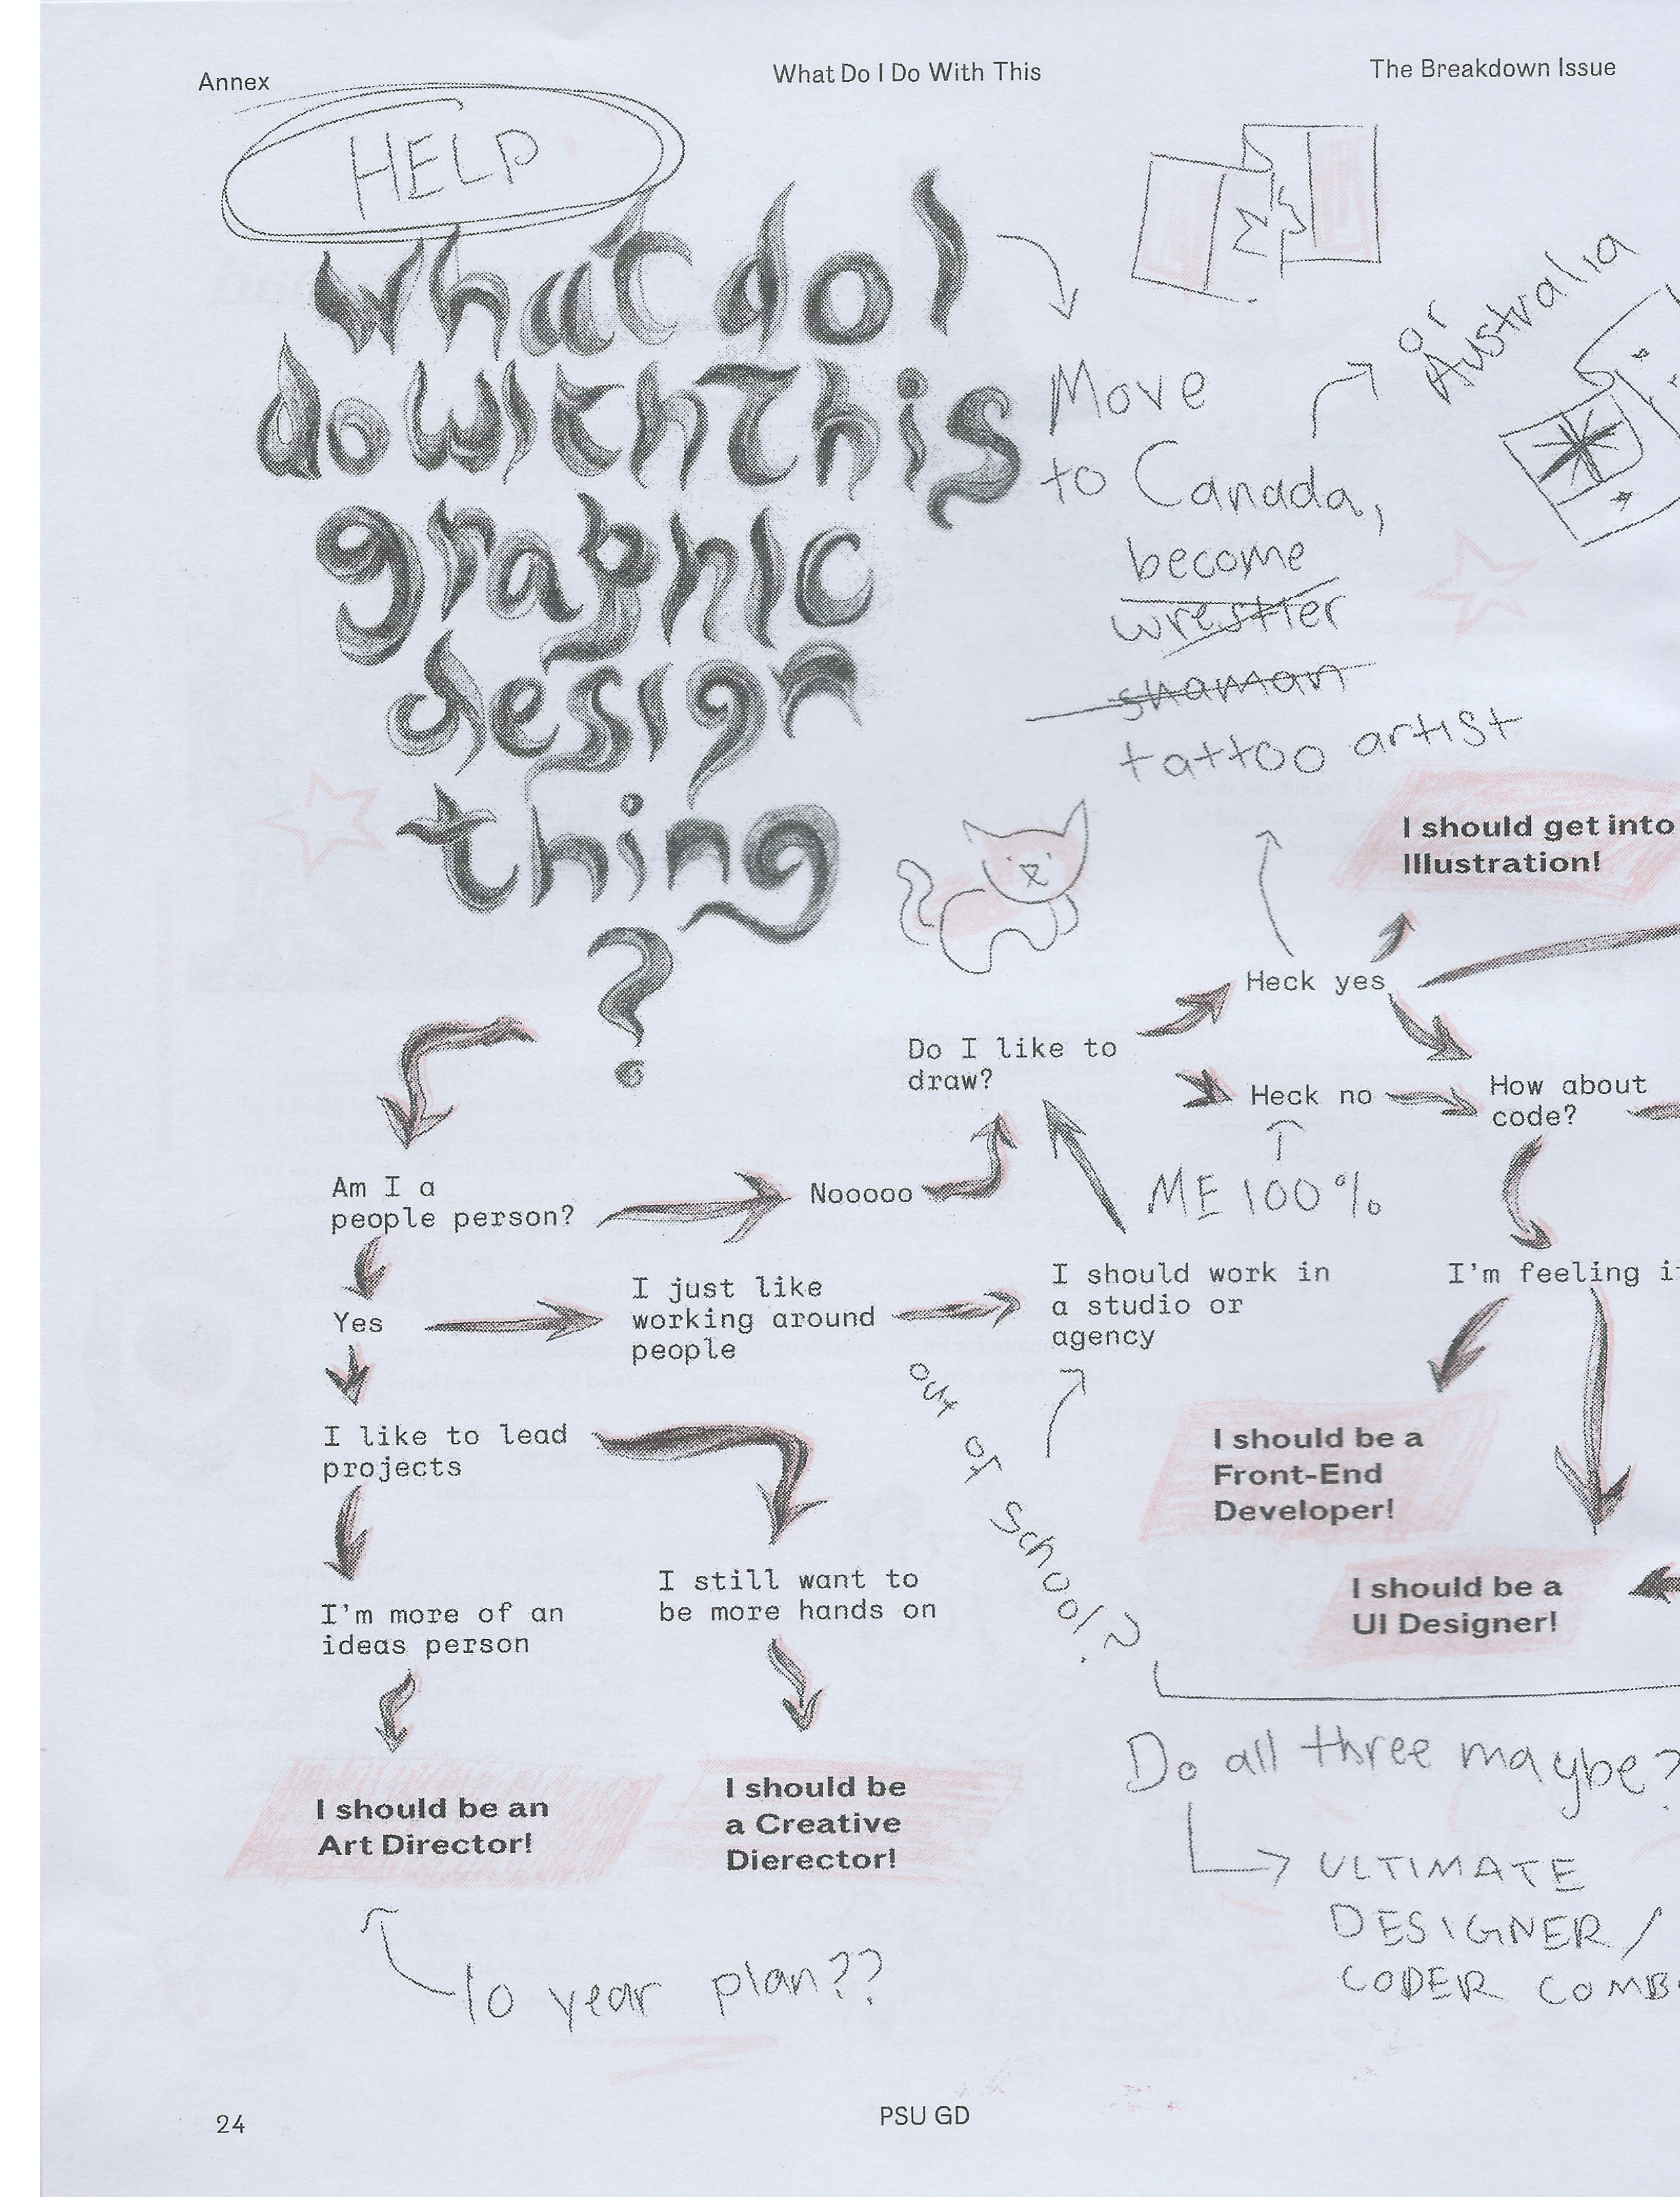 Annex
What Do I Do With This
The Breakdown Issue
HELP
What do I
do with This
graphic
design
thing
?
Move
to Canada,
or
Australia
become
wrestler
shaman
tattoo artist
I should get into
Illustration!
Heck yes
Do I like to
draw?
Heck no
How about
code?
ME 100%
Am I a
people person?
Nooooo
Yes
I just like
working around
people
I should work in
a studio or
agency
I'm feeling
out of School?
I like to lead
projects
I should be a
Front-End
Developer!
I still want to
be more hands on
I'm more of an
ideas person
I should be a
UI Designer!
Do all three maybe?
ULTIMATE
DESIGNER/
CODER COMB
I should be an
Art Director!
I should be
a Creative
Dierector!
10 year plan??
24
PSU GD